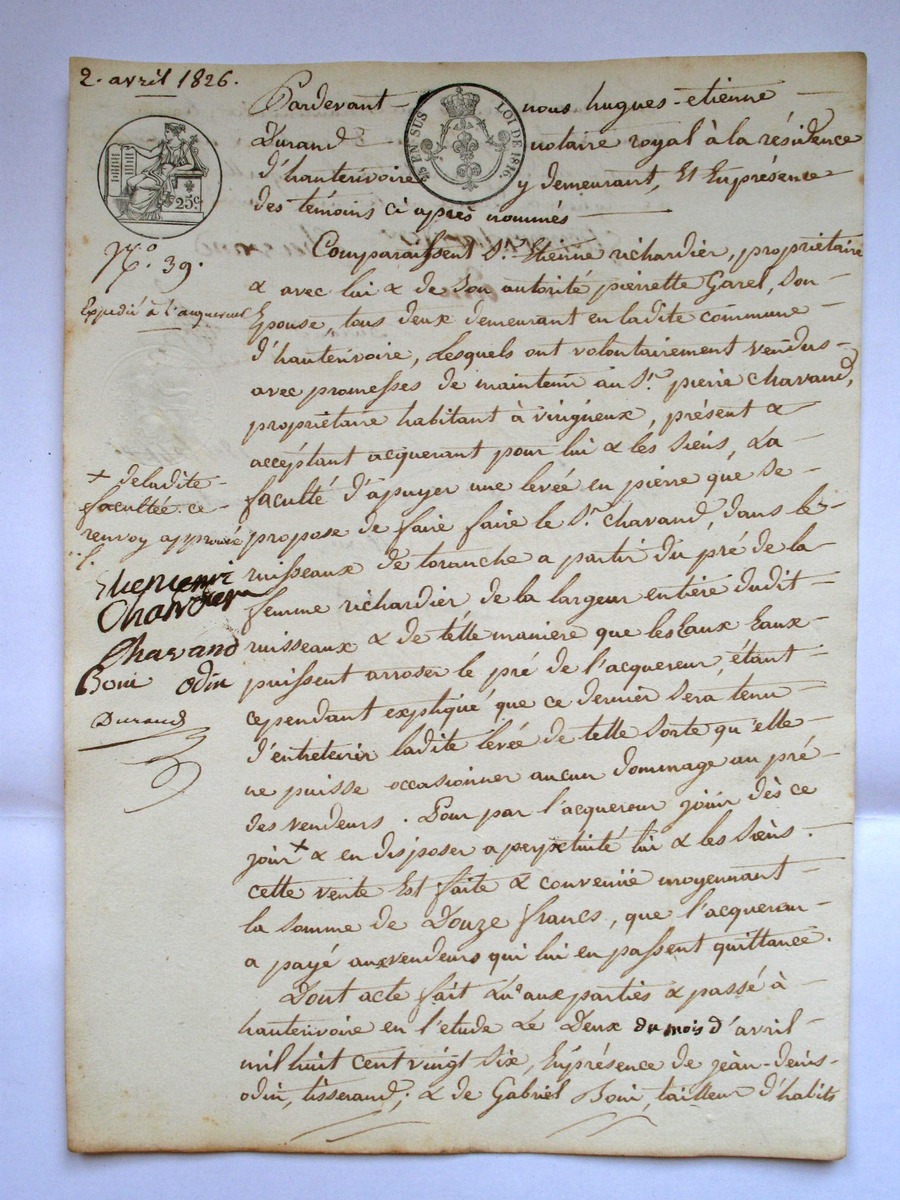 2. avril 1826.
Pardevant nous hugues-etienne
Durand notaire royal à la résidence
d'hauterivoire y demeurant, Et Enprésence
des témoins ci après nommés
25 EN SUS LOI DE 1816.
25c
No. 39.
Expedié à l'acquereur
Comparaissent Sr. Etienne richardier, propriétaire
& avec lui & de son autorité pierrette Garel, son
Epouse, tous deux demeurant en ladite commune
d'hauterivoire, Lesquels ont volontairement vendus
avec promesses de maintenir au Sr. pierre Chavand,
propriétaire habitant à viriqneux, présent &
acceptant acquerant pour lui & les siens, La
faculté d'apuyer une levée en pierre que se
propose de faire faire le Sr. Chavand, dans le
ruisseaux de toranche a partir du pré de la
femme richardier de la largeur entière dudit
ruisseaux & de telle maniere que les Eaux Eaux
puissent arroser le pré de l'acquereur, étant
cependant expliqué que ce dernier sera tenu
d'entretenir ladite levée de telle sorte qu'elle
ne puisse occasionner aucun dommage au pré
des vendeurs. Pour par l'acquereur jouir dès ce
jour + & en disposer a perpétuité lui & les siens.
cette vente Est faite & convenüe moyennant
la somme de Douze francs, que l'acquereur
a payé aux vendeurs qui lui en passent quittance.
Dont acte fait Lu aux parties & passé à
hauterivoire en l'etude Le Deux du mois d'avril
mil huit cent vingt six, Enprésence de jean-denis
odin, tisserand; & de Gabriel Boni, tailleur d'habits
+ deladite
facultée. ce
renvoy approuvé
Chavand
Boni odin
Durand